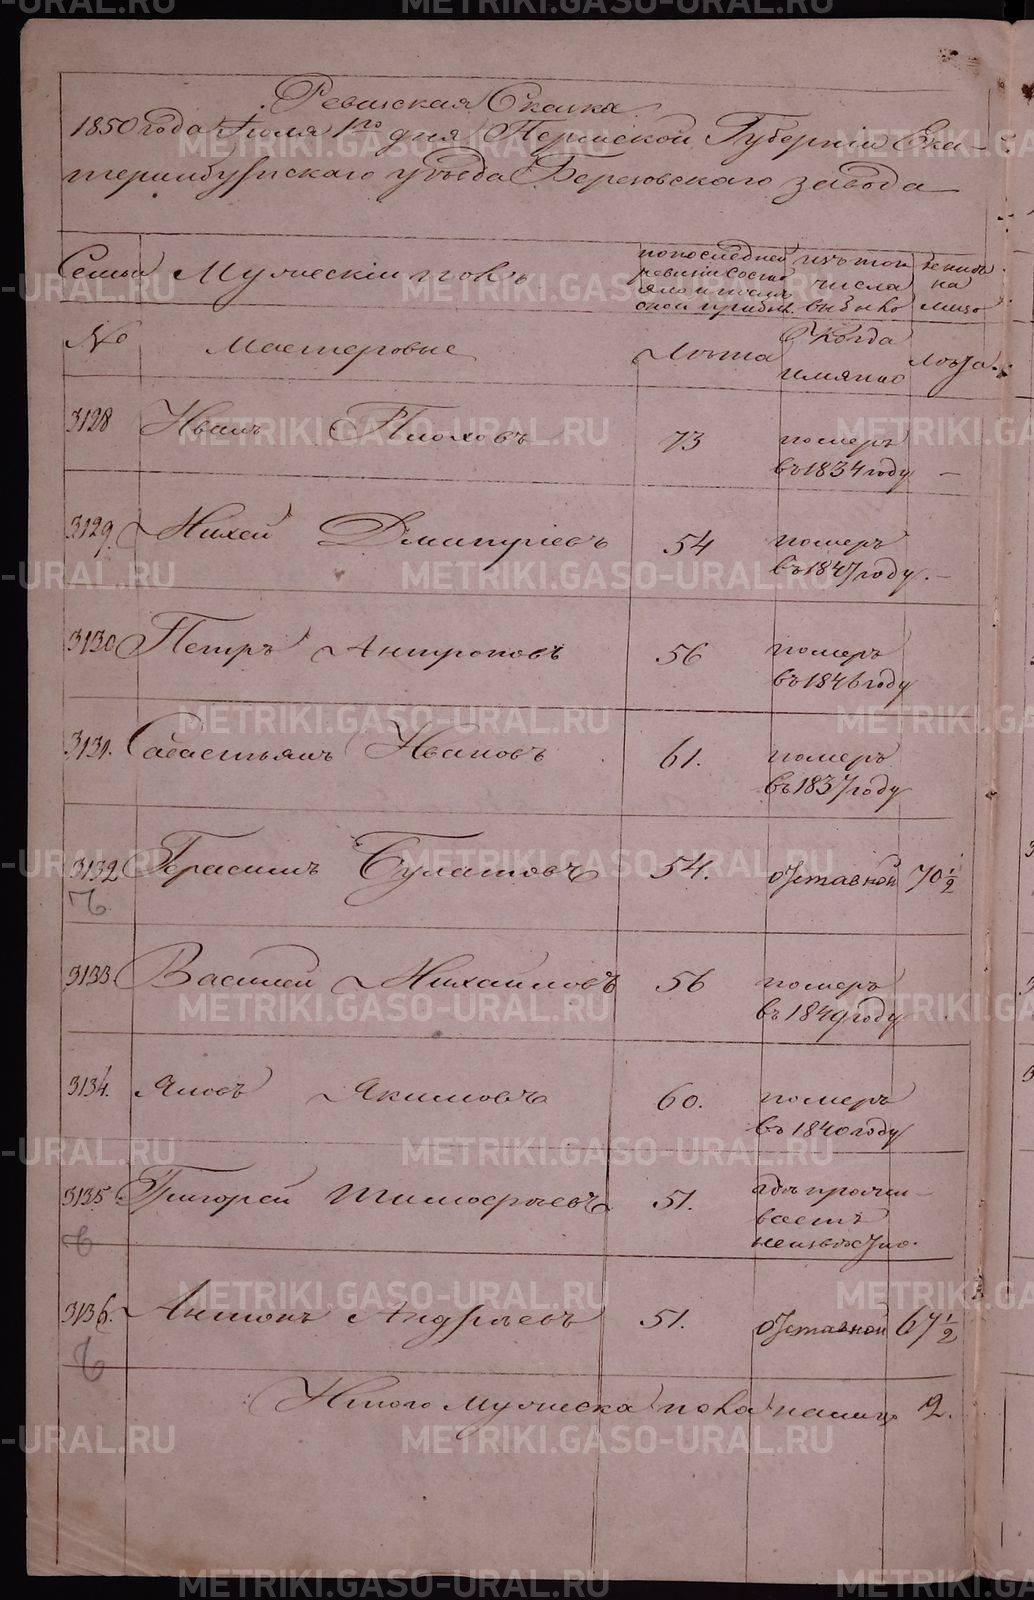 Ревизская Сказка
1850 года Июля 1го дня Пермской Губернiи Ека-
теринбургскаго уѣзда Березовскаго завода
Семьи Мужескiй полъ. по последней ревизiи состояло и после оной прибыл. изъ того числа выбыло Ныне на лицо
№ Мастеровые Лѣта Когда имянно Лѣта.
3128 Иванъ Плоховъ 73 померъ въ 1834 году —
3129. Михей Дмитрiевъ 54 померъ въ 1847 году. —
3130 Петръ Антроповъ 56 померъ въ 1846 году
3131. Савастьянъ Ивановъ 61. померъ въ 1837 году
3132 Герасимъ Булатовъ 54. отставной 70 1/2
3133. Василей Михайловъ 56 померъ въ 1849 году
3134. Яковъ Якимовъ 60. померъ въ 1840 году
3135 Григорей Тимофѣевъ 51. гдѣ проживаетъ неизвѣстно.
3136. Антонъ Андрѣевъ 51. отставной 67 1/2
Итого мужеска пола налицо 2.
METRIKI.GASO-URAL.RU